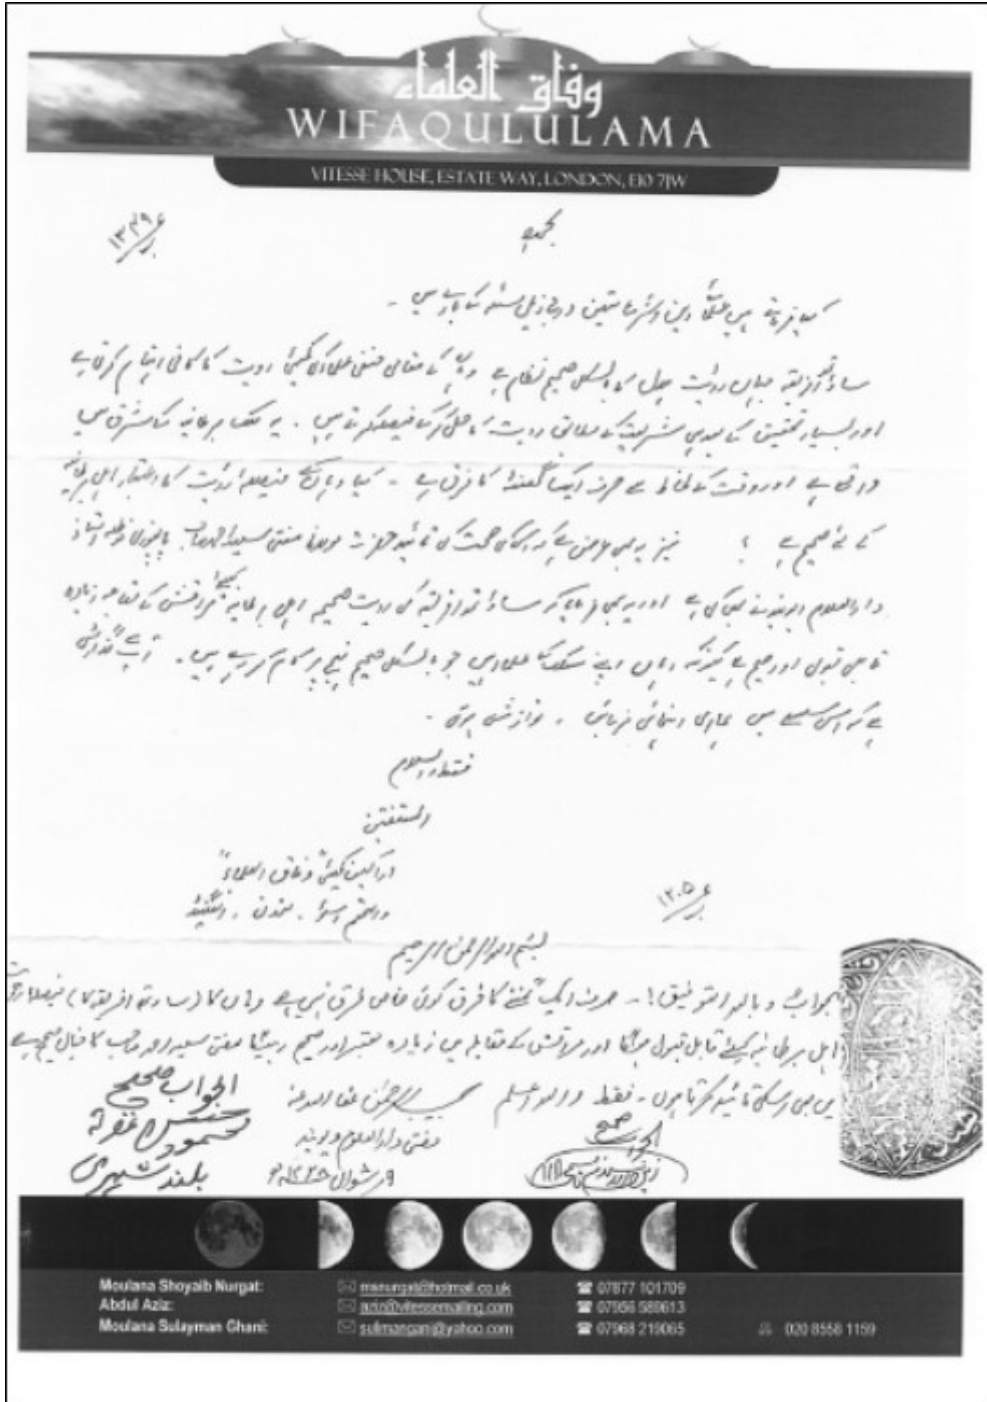 وفاق العلماء
WIFAQULULAMA
VITESSE HOUSE, ESTATE WAY, LONDON, E10 7JW
کیا فرماتے ہیں علماء دین و شرع متین درج ذیل مسئلہ کے بارے میں ۔
ساؤتھ افریقہ جہاں رؤیت ہلال کا بالکل صحیح نظام ہے وہاں کے مقامی کمیٹی رویت کا کافی اہتمام کرتی ہے
اور بسیار تحقیق کے بعد ہی شریعت کے مطابق رویت کا فیصلہ کرتے ہیں ۔ یہ ملک برطانیہ کے مشرق میں
واقع ہے اور وقت کے لحاظ سے صرف ایک گھنٹہ کا فرق ہے ۔ کیا وہاں کے فیصلہ رؤیت کا اعتبار اہل برطانیہ
کے لئے صحیح ہے ؟ نیز یہ بھی عرض ہے کہ اسکی صحت کی تائید حضرت مولانا مفتی سعید احمد صاحب پالنپوری مدظلہ استاذ
دارالعلوم دیوبند نے بھی کی ہے اور یہ بھی فرمایا کہ ساؤتھ افریقہ کی رویت صحیح اہل برطانیہ کیلئے مراقش کے مقابلہ زیادہ
قابل قبول اور صحیح ہے کیونکہ وہاں اپنے مسلک کے علماء ہیں جو بالکل صحیح نہج پر کام کر رہے ہیں ۔ آپ سے گذارش
ہے کہ اس سلسلے میں ہماری رہنمائی فرمائیں ۔ نوازش ہوگی ۔
فقط والسلام
المستفتین
اراکین کمیٹی وفاق العلماء
والتھم اسٹو ۔ لندن ۔ انگلینڈ
بسم اللہ الرحمن الرحیم
الجواب وباللہ التوفیق !۔ صرف ایک گھنٹے کا فرق کوئی خاص فرق نہیں ہے وہاں کا (ساؤتھ افریقہ کا) فیصلہ رؤیت
اہل برطانیہ کیلئے قابل قبول ہوگا اور مراقش کے مقابلہ میں زیادہ معتبر اور صحیح رہیگا مفتی سعید احمد صاحب کا خیال صحیح ہے
میں بھی اسکی تائید کرتا ہوں ۔ فقط واللہ اعلم
الجواب صحیح
حبیب الرحمن عفا اللہ عنہ
مفتی دارالعلوم دیوبند
الجواب صحیح
محمود حسن غفرلہ
بلند شہری
Moulana Shoyaib Nurgat: msnurgat@hotmail.co.uk 07877 101709
Abdul Aziz: aziz@vitessemailing.com 07956 589613
Moulana Sulayman Ghani: sulimangani@yahoo.com 07968 219065 020 8558 1159